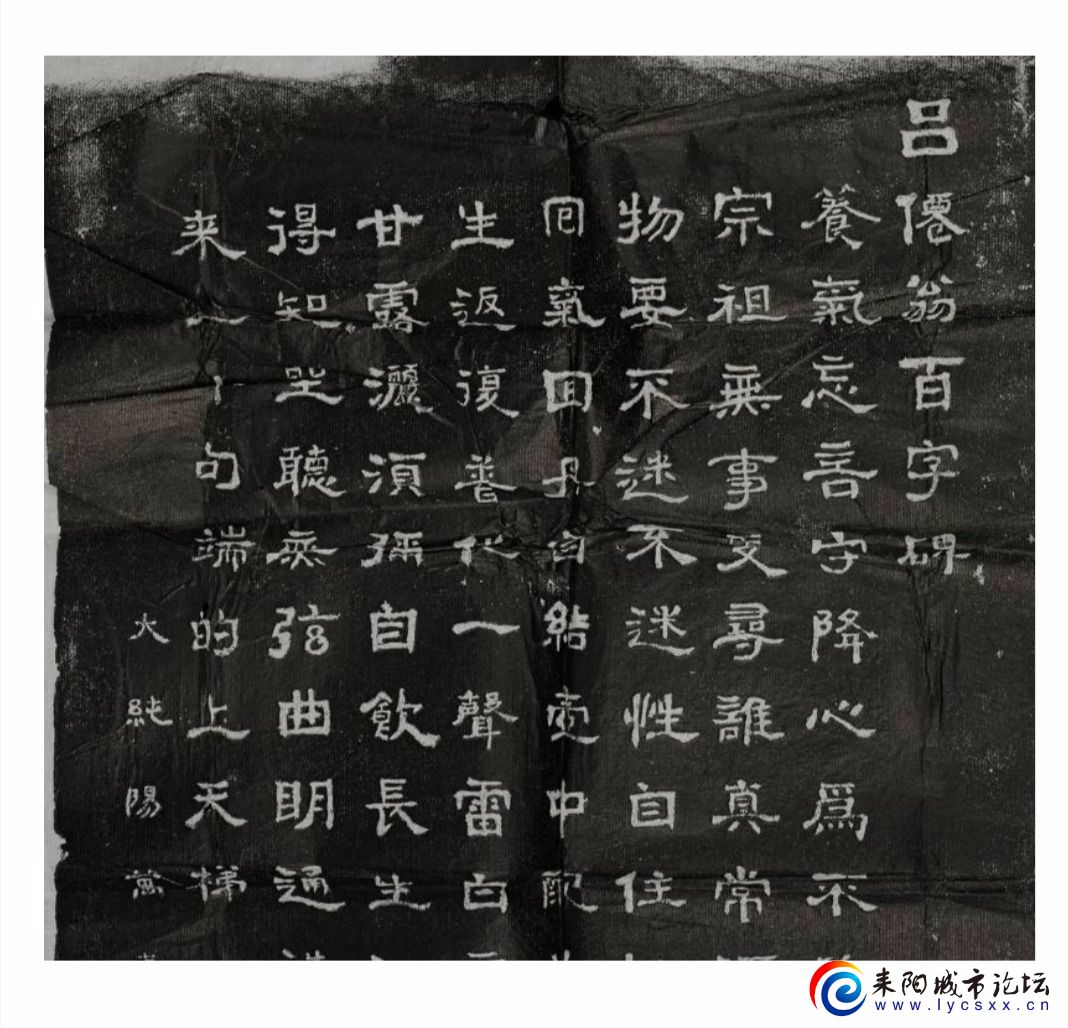 吕僊翁百字碑
養氣忘言守降心爲不
宗祖無事更尋誰真常
物要不迷不迷性自住
囘氣回丹自結壺中配
生返復普化一聲雷白
甘露灑須彌自飲長生
得知坐聽無弦曲明通
来二十句端的上天梯
純陽萬
耒阳城市论坛
www.lycsxx.cn